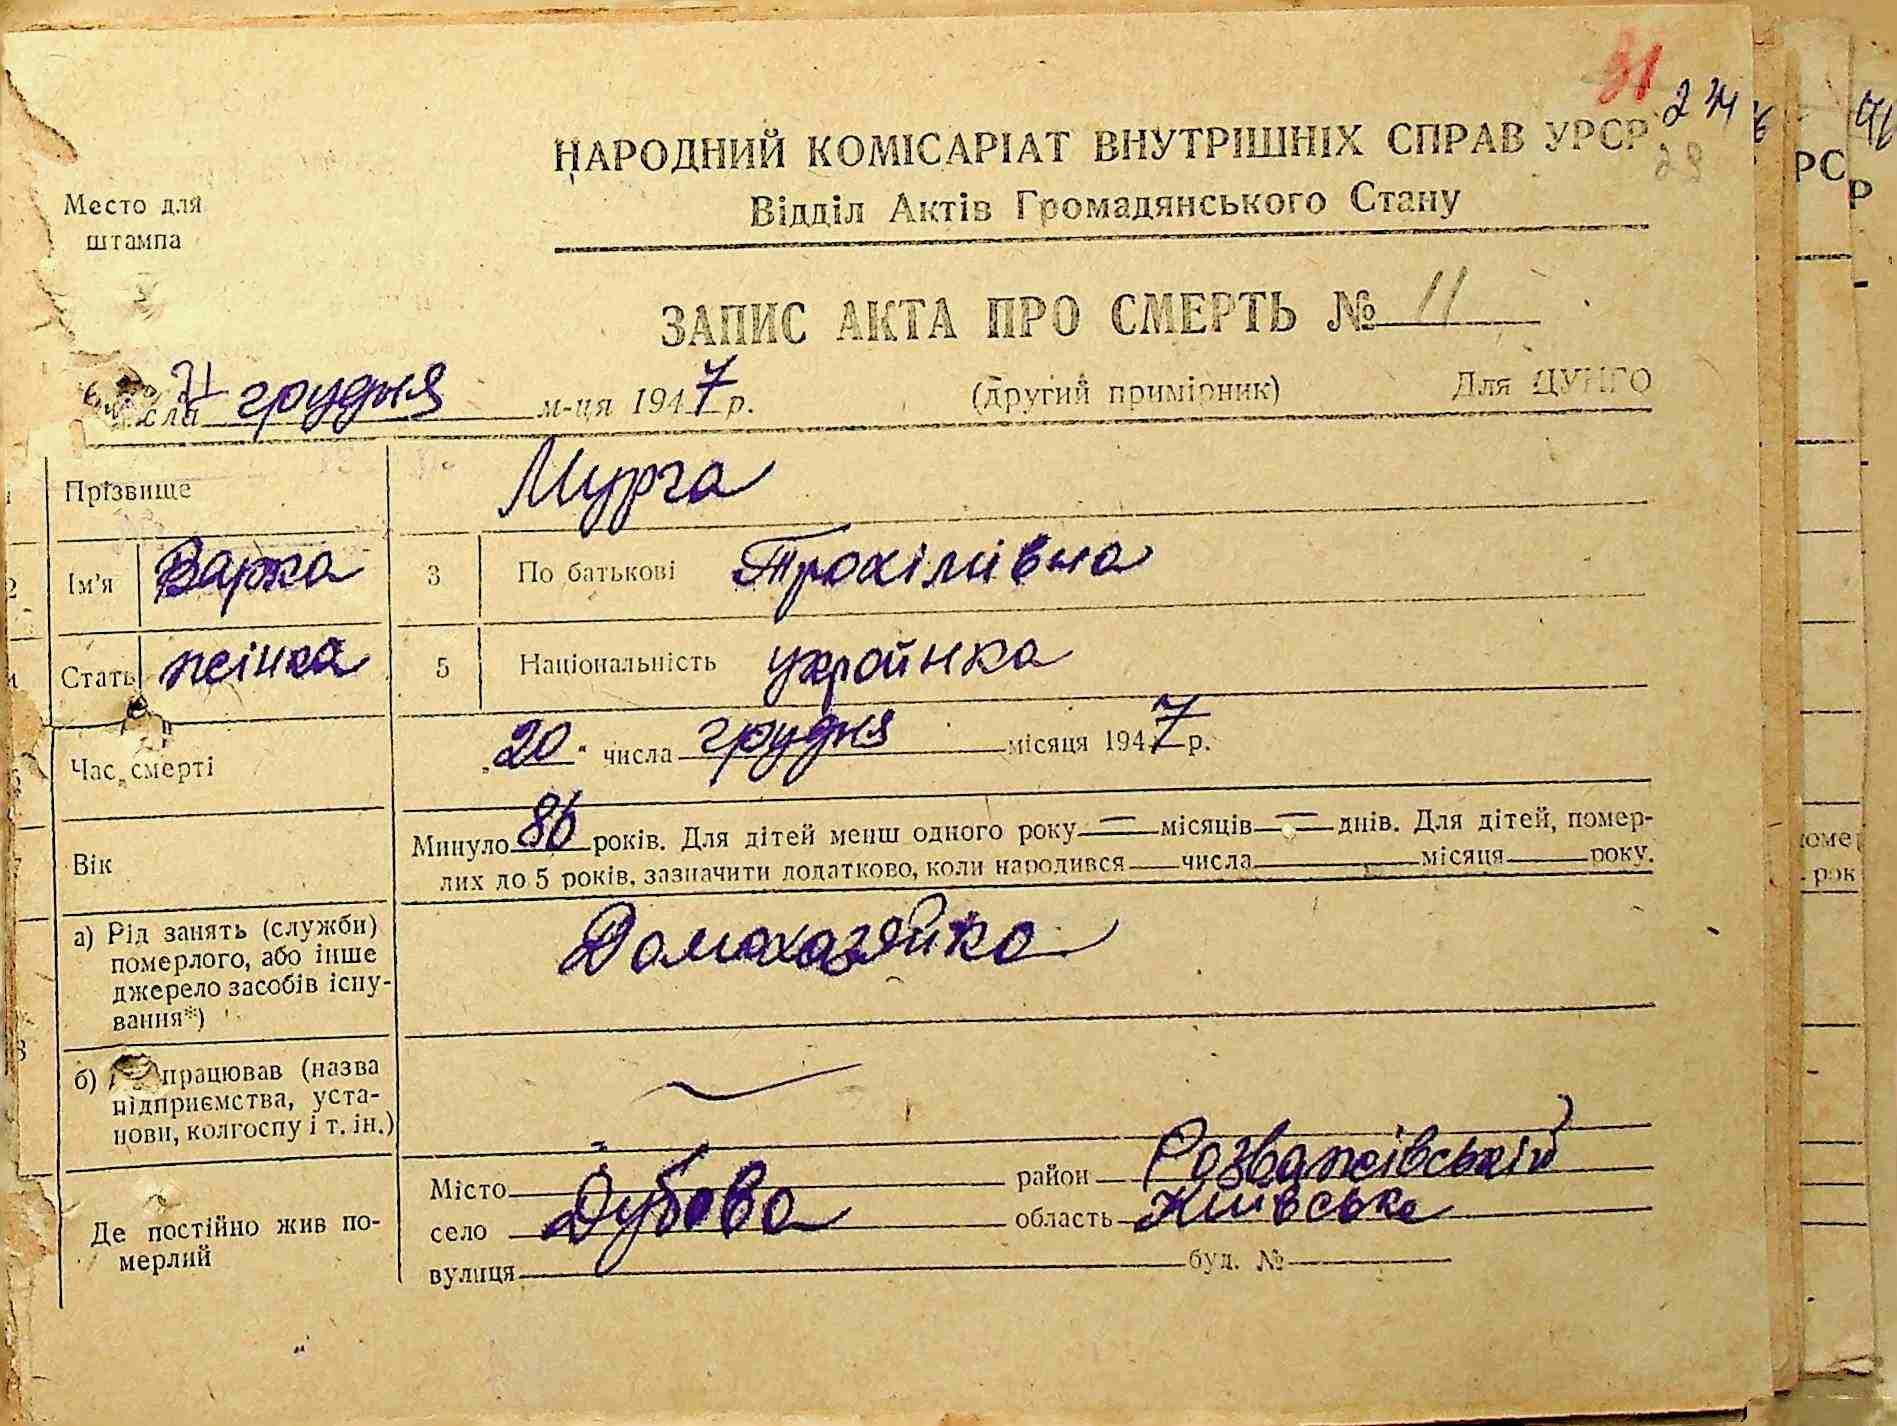 31
2 24
28
НАРОДНИЙ КОМІСАРІАТ ВНУТРІШНІХ СПРАВ УРСР
Место для штампа
Відділ Актів Громадянського Стану
ЗАПИС АКТА ПРО СМЕРТЬ № 11
21 грудня м-ця 1947 р. (другий примірник) Для ЦУНГО
Прізвище Мурга
Ім'я Варка 3 По батькові Трохимівна
Стать жінка 5 Національність українка
Час смерті „20" числа грудня місяця 1947 р.
Вік Минуло 86 років. Для дітей менш одного року — місяців — днів. Для дітей, помер-
лих до 5 років, зазначити додатково, коли народився числа місяця року.
а) Рід занять (служби)
померлого, або інше
джерело засобів існу-
вання*)
Домохазяйка
б) працював (назва
підприємства, уста-
нови, колгоспу і т. ін.)
Де постійно жив по-
мерлий
Місто район Розважівський
село Дубова область Київська
вулиця буд. №